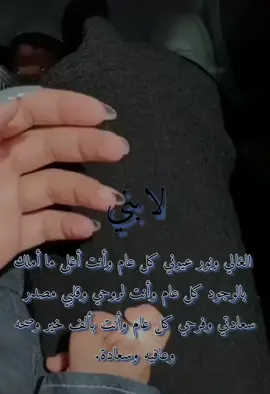 لابني
الغالي ونور عيوني كل عام وأنت أغلى ما أملك
بالوجود كل عام وأنت لروحي وقلبي مصدر
سعادتي وفرحي كل عالم وأنت بألف خير وصحه
وعافيه وسعادة.